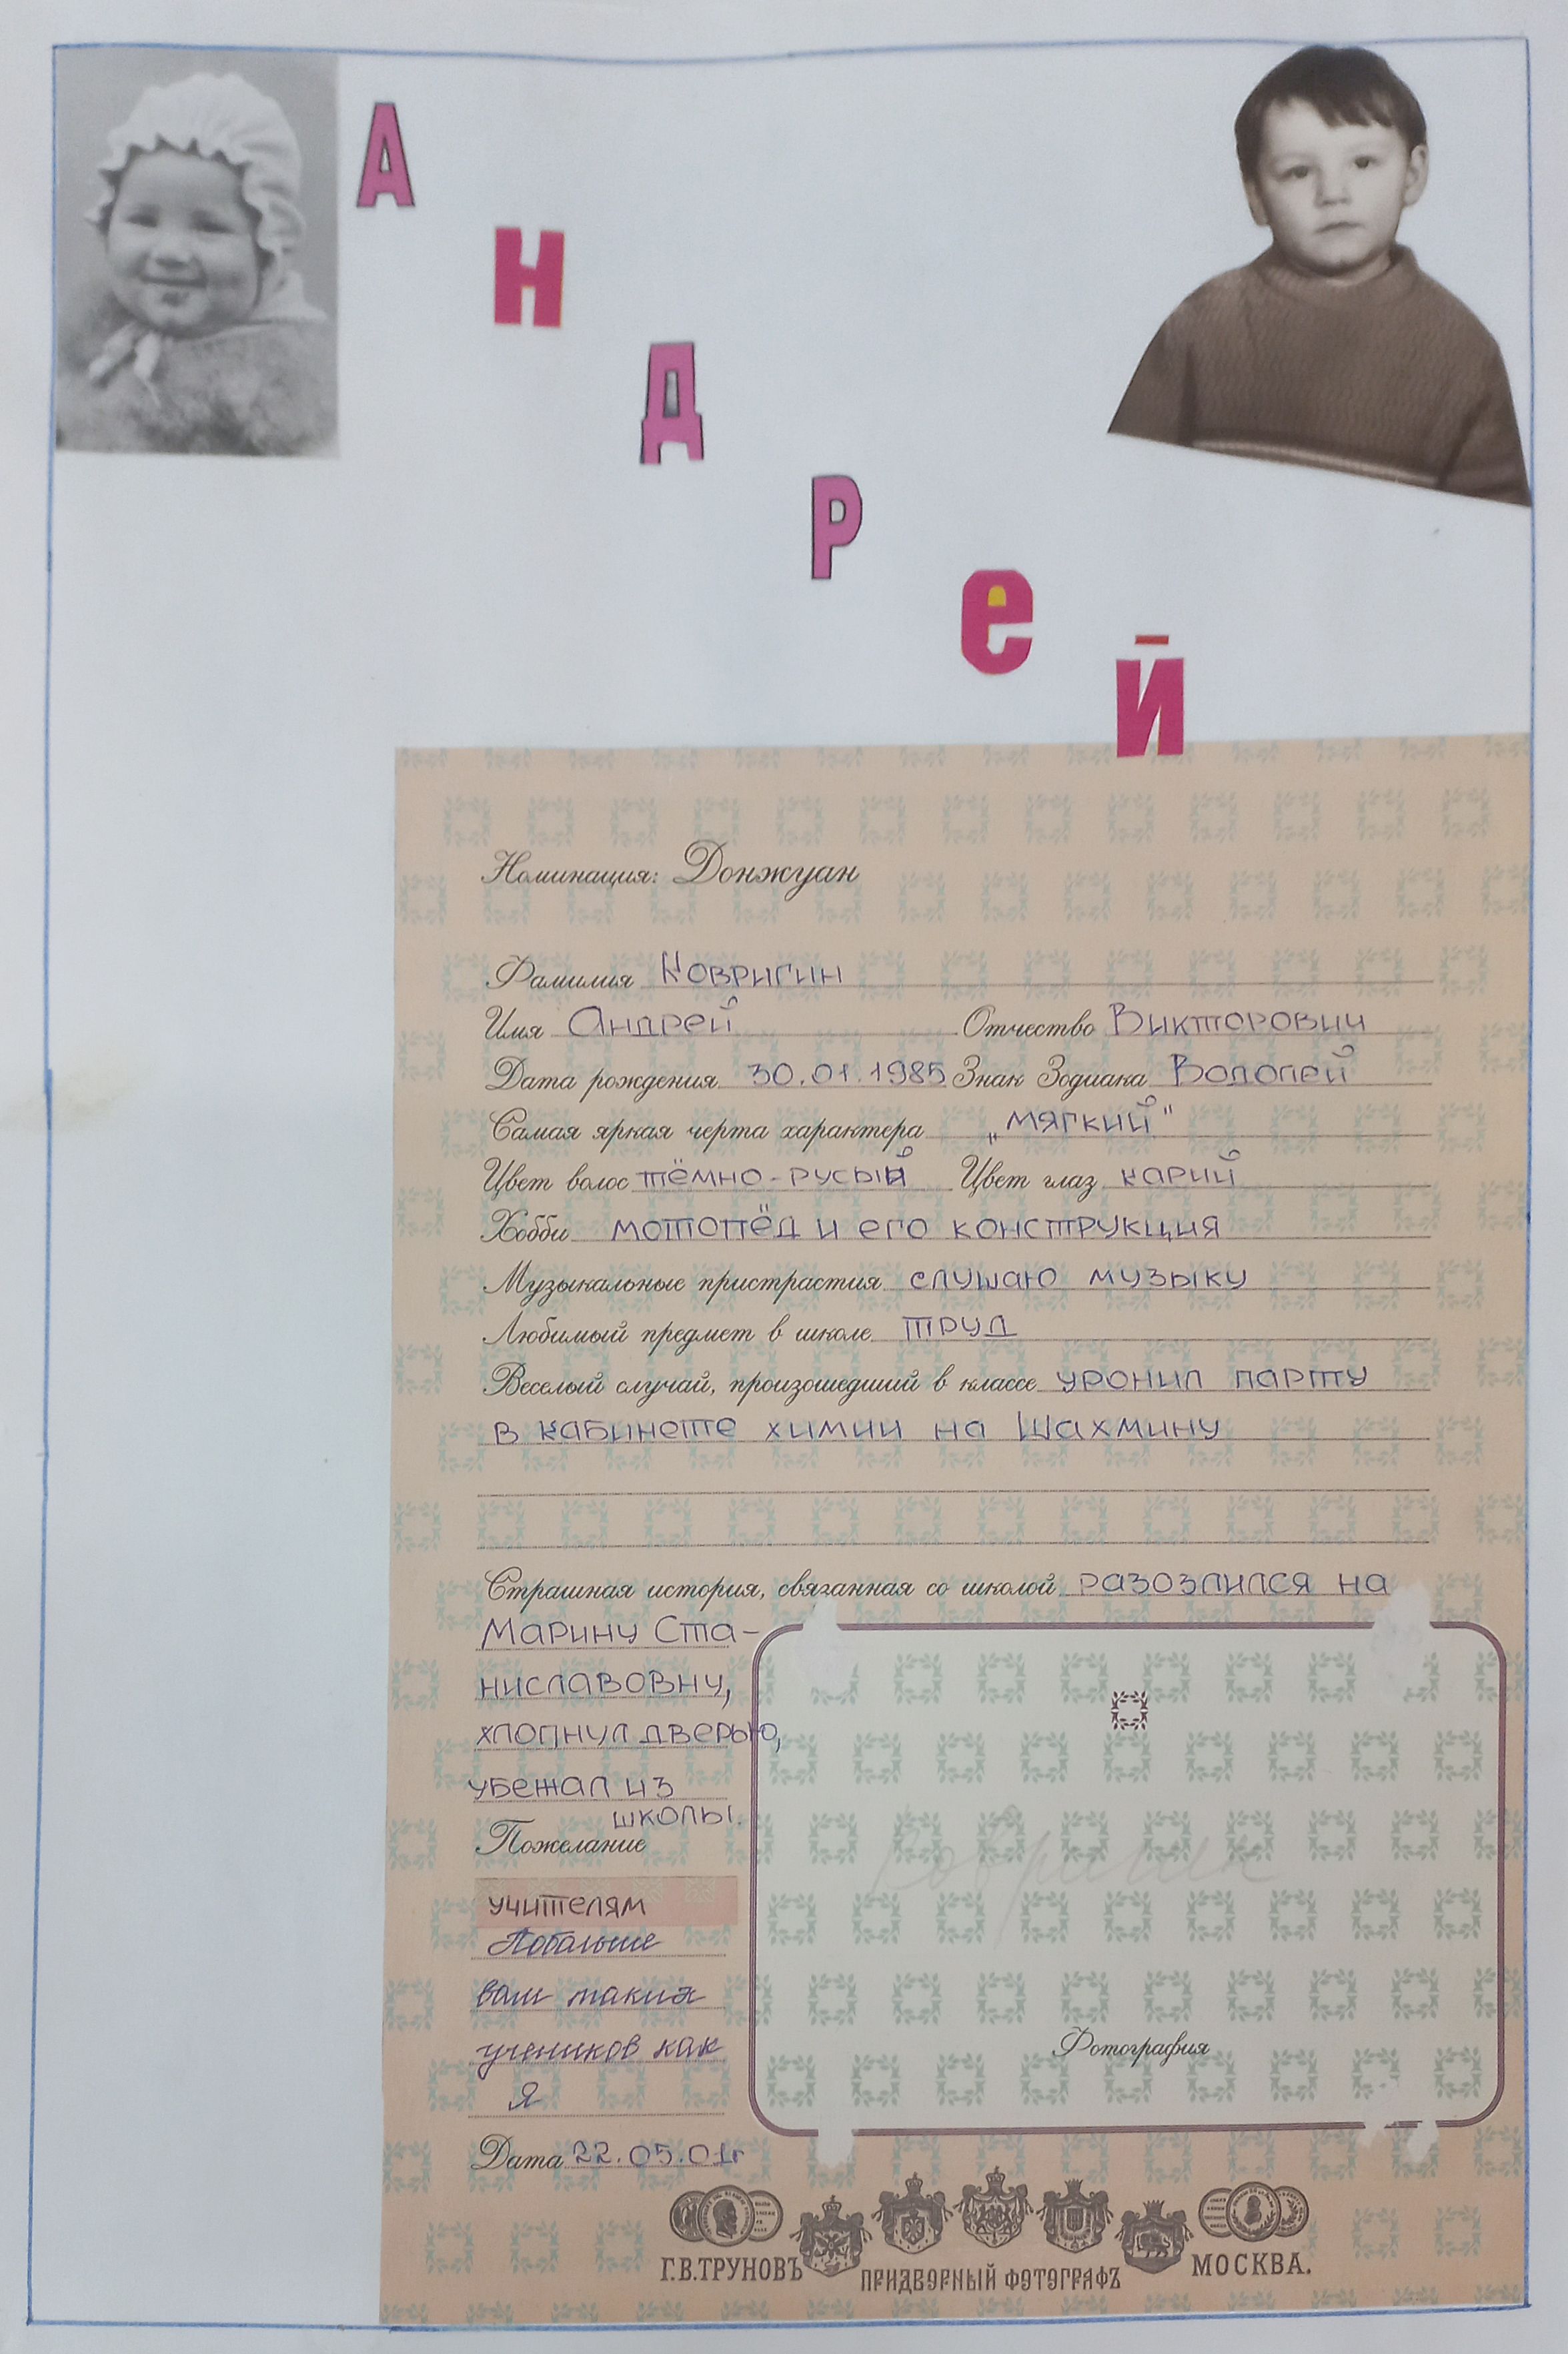 АНДРЕЙ
Номинация: Донжуан
Фамилия Ковригин
Имя Андрей Отчество Викторович
Дата рождения 30.01.1985 Знак Зодиака Водолей
Самая яркая черта характера „мягкий"
Цвет волос тёмно-русый Цвет глаз карий
Хобби мотопёд и его конструкция
Музыкальные пристрастия слушаю музыку
Любимый предмет в школе труд
Веселый случай, произошедший в классе уронил парту
в кабинете химии на Шахмину
Страшная история, связанная со школой разозлился на
Марину Ста-
ниславовну,
хлопнул дверью,
убежал из
школы.
Пожелание
учителям
Побольше
вам таких
учеников как
я
Ковригин
Фотография
Дата 22.05.01г
Г.В.ТРУНОВЪ ПРИДВОРНЫЙ ФОТОГРАФЪ МОСКВА.